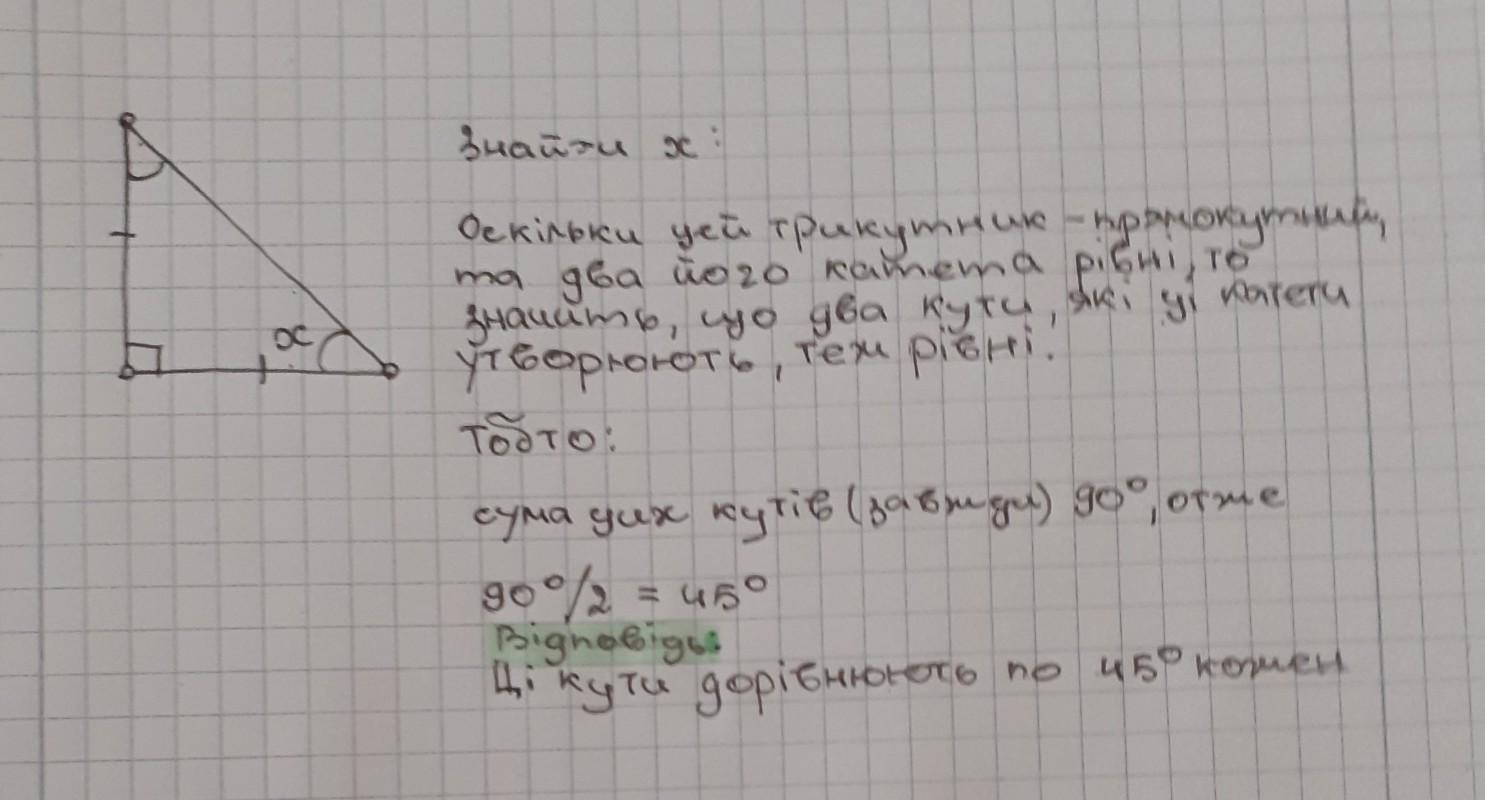 Знайти x:
Оскільки цей трикутник - прямокутний,
та два його катета рівні, то
значить, що два кути, які ці катети
утворюють, теж рівні.
x
Тобто:
сума цих кутів (завжди) 90°, отже
90°/2 = 45°
Відповідь:
Ці кути дорівнюють по 45° кожен